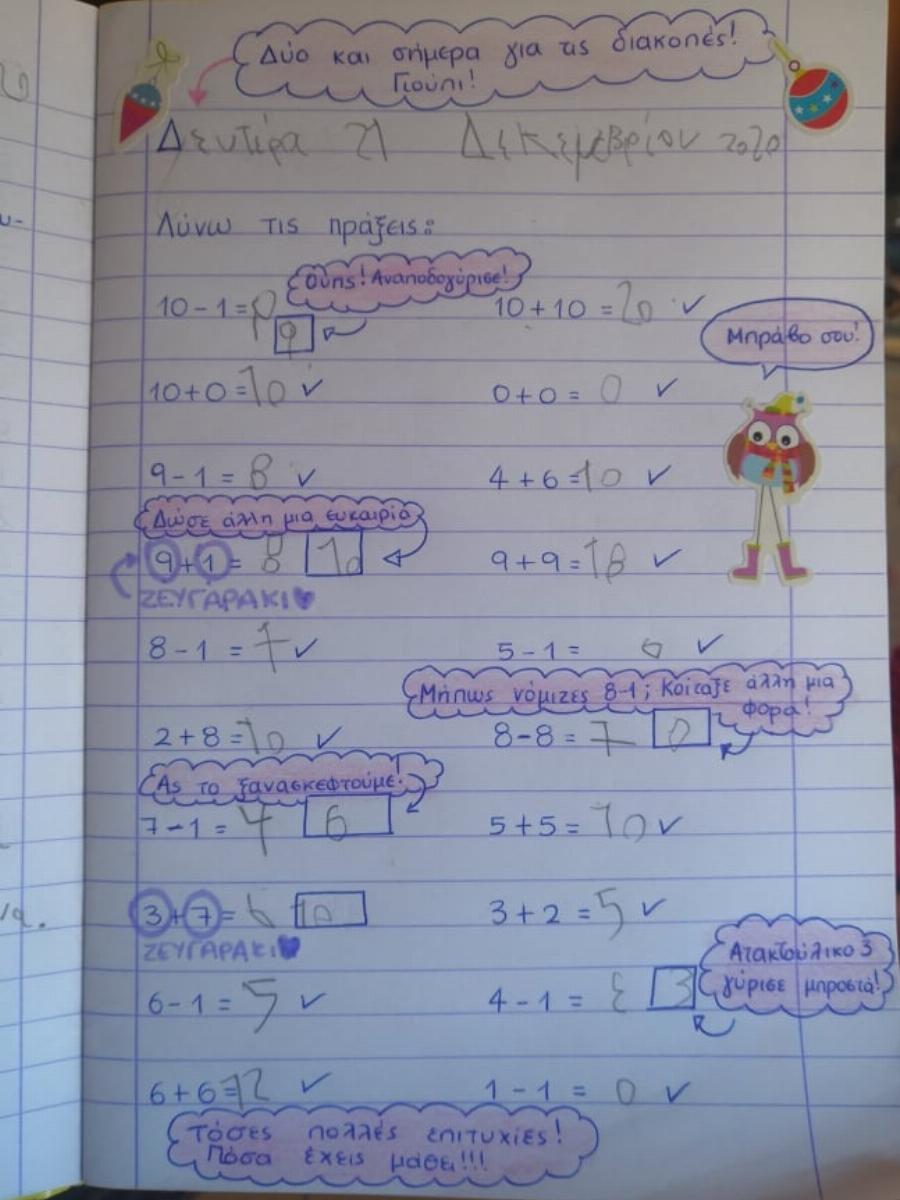 Δύο και σήμερα για τις διακοπές!
Γιούπι!
Δευτέρα 21 Δεκεμεβρίου 2020
Λύνω τις πράξεις:
Ουπς! Αναποδογύρισε!
10-1= 9 10+10=20 ✓
9
Μπράβο σου!
10+0=10 ✓ 0+0= 0 ✓
9-1= 8 ✓ 4+6=10 ✓
Δώσε άλλη μια ευκαιρία
9+1= 8 10 9+9=18 ✓
ΖΕΥΓΑΡΑΚΙ
8-1 =7 ✓ 5-1= ✓
Μήπως νόμιζες 8-1; Κοίταξε άλλη μια
φορά!
2+8=10 ✓ 8-8= 7 0
Ας το ξανασκεφτούμε.
7-1= 4 6 5+5=10 ✓
3+7= 6 10 3+2=5 ✓
ΖΕΥΓΑΡΑΚΙ
Ατακτούλικο 3
γύρισε μπροστά!
6-1= 5 ✓ 4-1= ε 3
6+6=12 ✓ 1-1= 0 ✓
Τόσες πολλές επιτυχίες!
Πόσα έχεις μάθει!!!